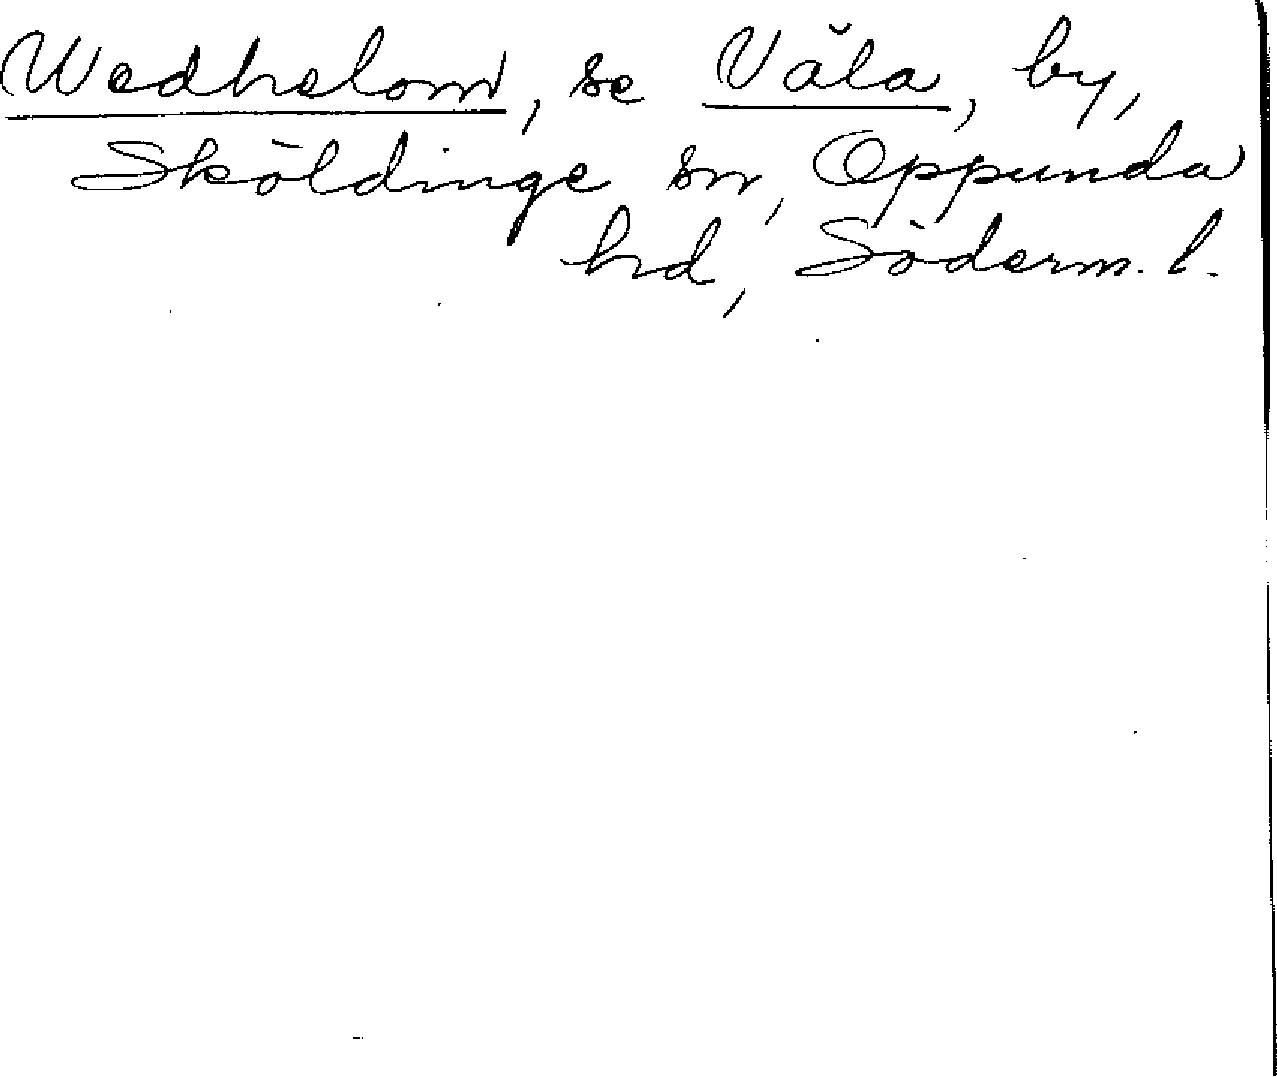 Wedhelom, se Väla, by,
Sköldinge sn, Oppunda
hd, Söderm. l.